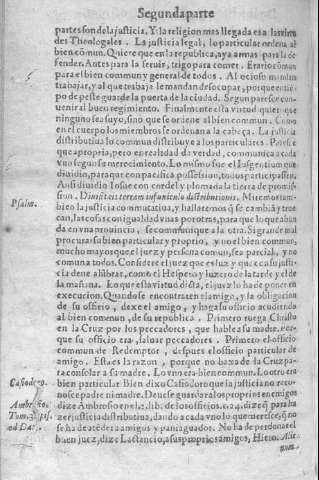 Segunda parte
partes son de la justicia. Y la religion mas llegada es a las tres
des Theologales. La justicia legal, lo particular ordena al
bien comun. Quiere que en la republica, aya armas para la de
fender. Antes para la seruir, trigo para comer. Erario comun
para el bien commun y general de todos. Al ocioso manda
trabajar, y al que trabaja le manda
po de peste guarde la puerta de la ciudad. Segun paresce con
uenir al buen regimiento. Finalmente esta virtud quier que
ninguno sea suyo, sino que se ordene al bien commun. Como
en el cuerpo los miembros se ordenan a la cabeça. La justicia
distributiua lo commun distribuye a los particulares. Paresce
que apropria, pero en realidad da verdad, communica a cada
vno segun su merescimiento. Lo mismo fue el
diuidio, para que con pacifica possession, todos participassen.
Assi diuidio Iosue con cordel y plomada la tierra de promis-
Psalm.
sion. Diuisit eis terram in funiculo distributionis. Miremos tam-
bien la justicia comutatiua, y hallaremos q̃ se cambiã y true
can, las cosas con igualdad vnas por otras, para que lo que abun
da en vna prouincia, se communique a la otra. Si grande mal
procura su bien particular y proprio, y no el bien commun,
mucho mayor que el juez y persona comun, sea parcial, y no
comun a todos. Considere el juez que es luz y que la
cia deue alibrar, como el Hespero y luzero de la tarde y el de
la mañana. Lo que es la virtud dicta, el juez lo ha de poner en
execucion. Quando se encontraren el amigo, y la obligacion
de su officio, dexe el amigo, y haga su officio acudiendo
al bien commun, de su republica. Primero ruega Christo
en la Cruz por los peccadores, que hable a su madre. Por-
que su officio era, saluar peccadores. Primero el officio
commun de Redemptor, despues el officio particular de
amigo. Esta es la razon, porque no baxa de la Cruz pa-
ra consolar a su madre. Lo vno era bien commun. Lo otro era
Casiodo.
bien particular. Bien dixo Casiodoro que la justicia no reco-
nosce padre ni madre. Deuese guardar a los proprios enemigos
Ambrosio.
dize Ambrosio en el.1. lib. de los officios. dize q̃ para ha
Tom.
zer justicia distributiua, dando a cada vno lo que meresce, q̃ no
se ha de atéder a amigos y paniaguados. No ha de perdonar el
buen juez, dize Lactencio, a sus proprios amigos, Hiero. Alie